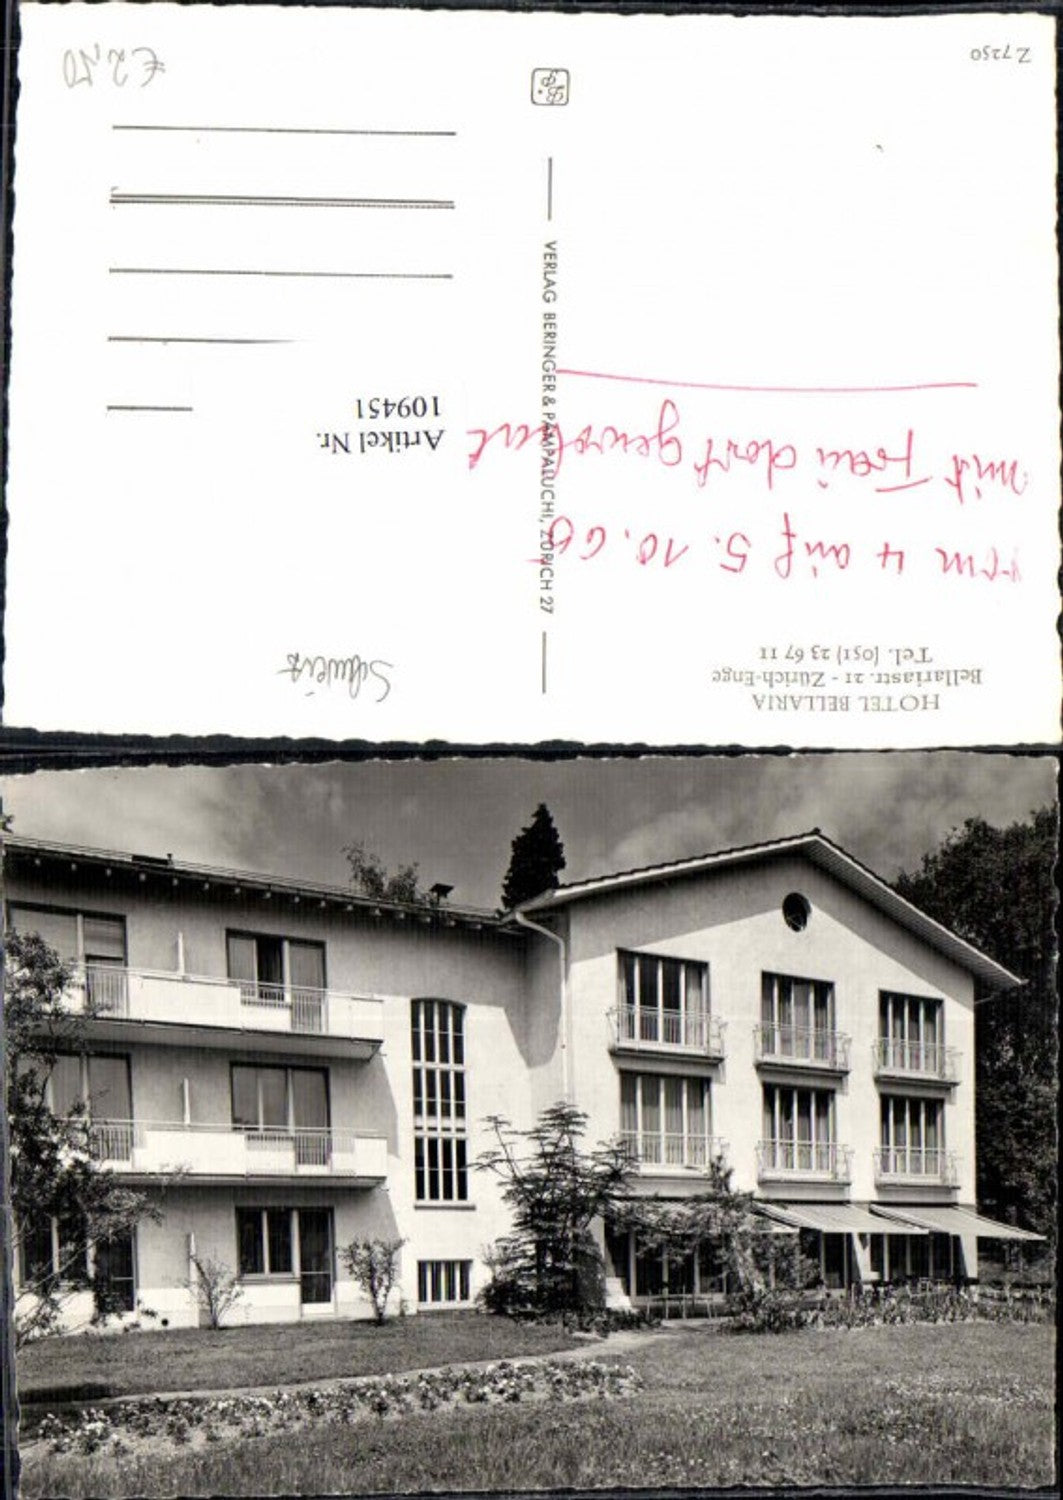 HOTEL BELLARIA
Bellariastr. 21 - Zürich-Enge
Tel. (051) 23 67 11
vom 4 auf 5. 10. 60
mit Frau dort gewohnt
Z 7250
VERLAG BERINGER & PAMPALUCHI, ZÜRICH 27
Schweiz
Artikel Nr.
109451
€ 2,50